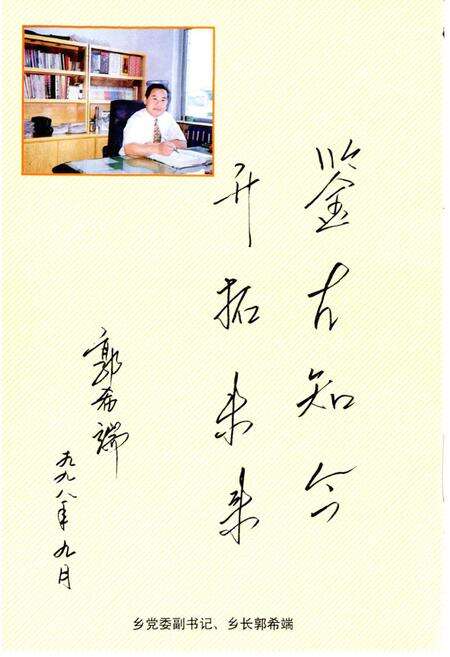 鉴古知今
开拓未来
郭希端
九九八年九月
乡党委副书记、乡长郭希端